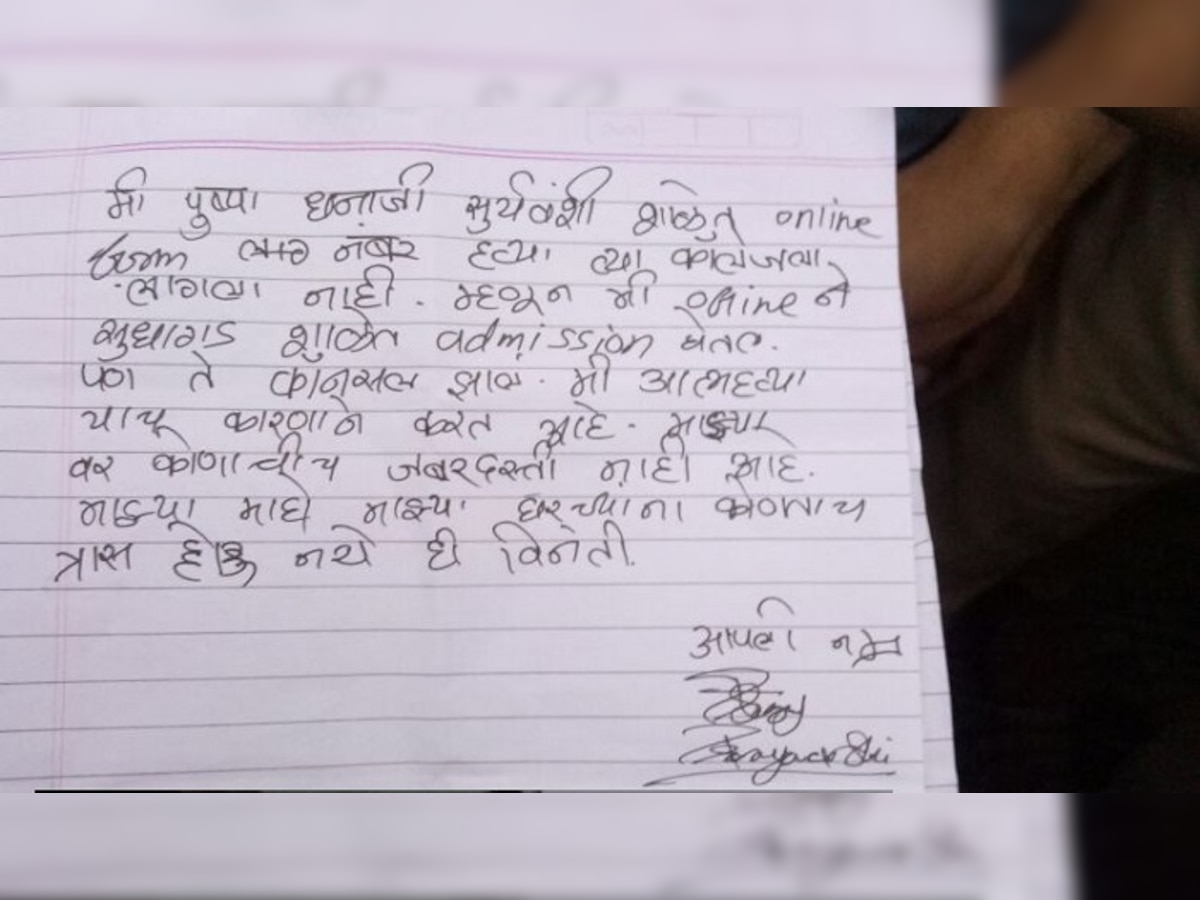 मी पुष्पा धनाजी सुर्यवंशी शाळेत online
form नंबर हत्या त्या कालेजला
लागला नाही. म्हणून मी offline ने
सुधागड शाळेत admission घेतल.
पण ते कानसल झाल. मी आत्महत्या
याच कारणाने करत आहे. माझ्या
वर कोणाचीच जबरदस्ती नाही आहे.
माझ्या माघे माझ्या घरच्याना कोणताच
त्रास होऊ नये ही विनंती.
आपली नम्र